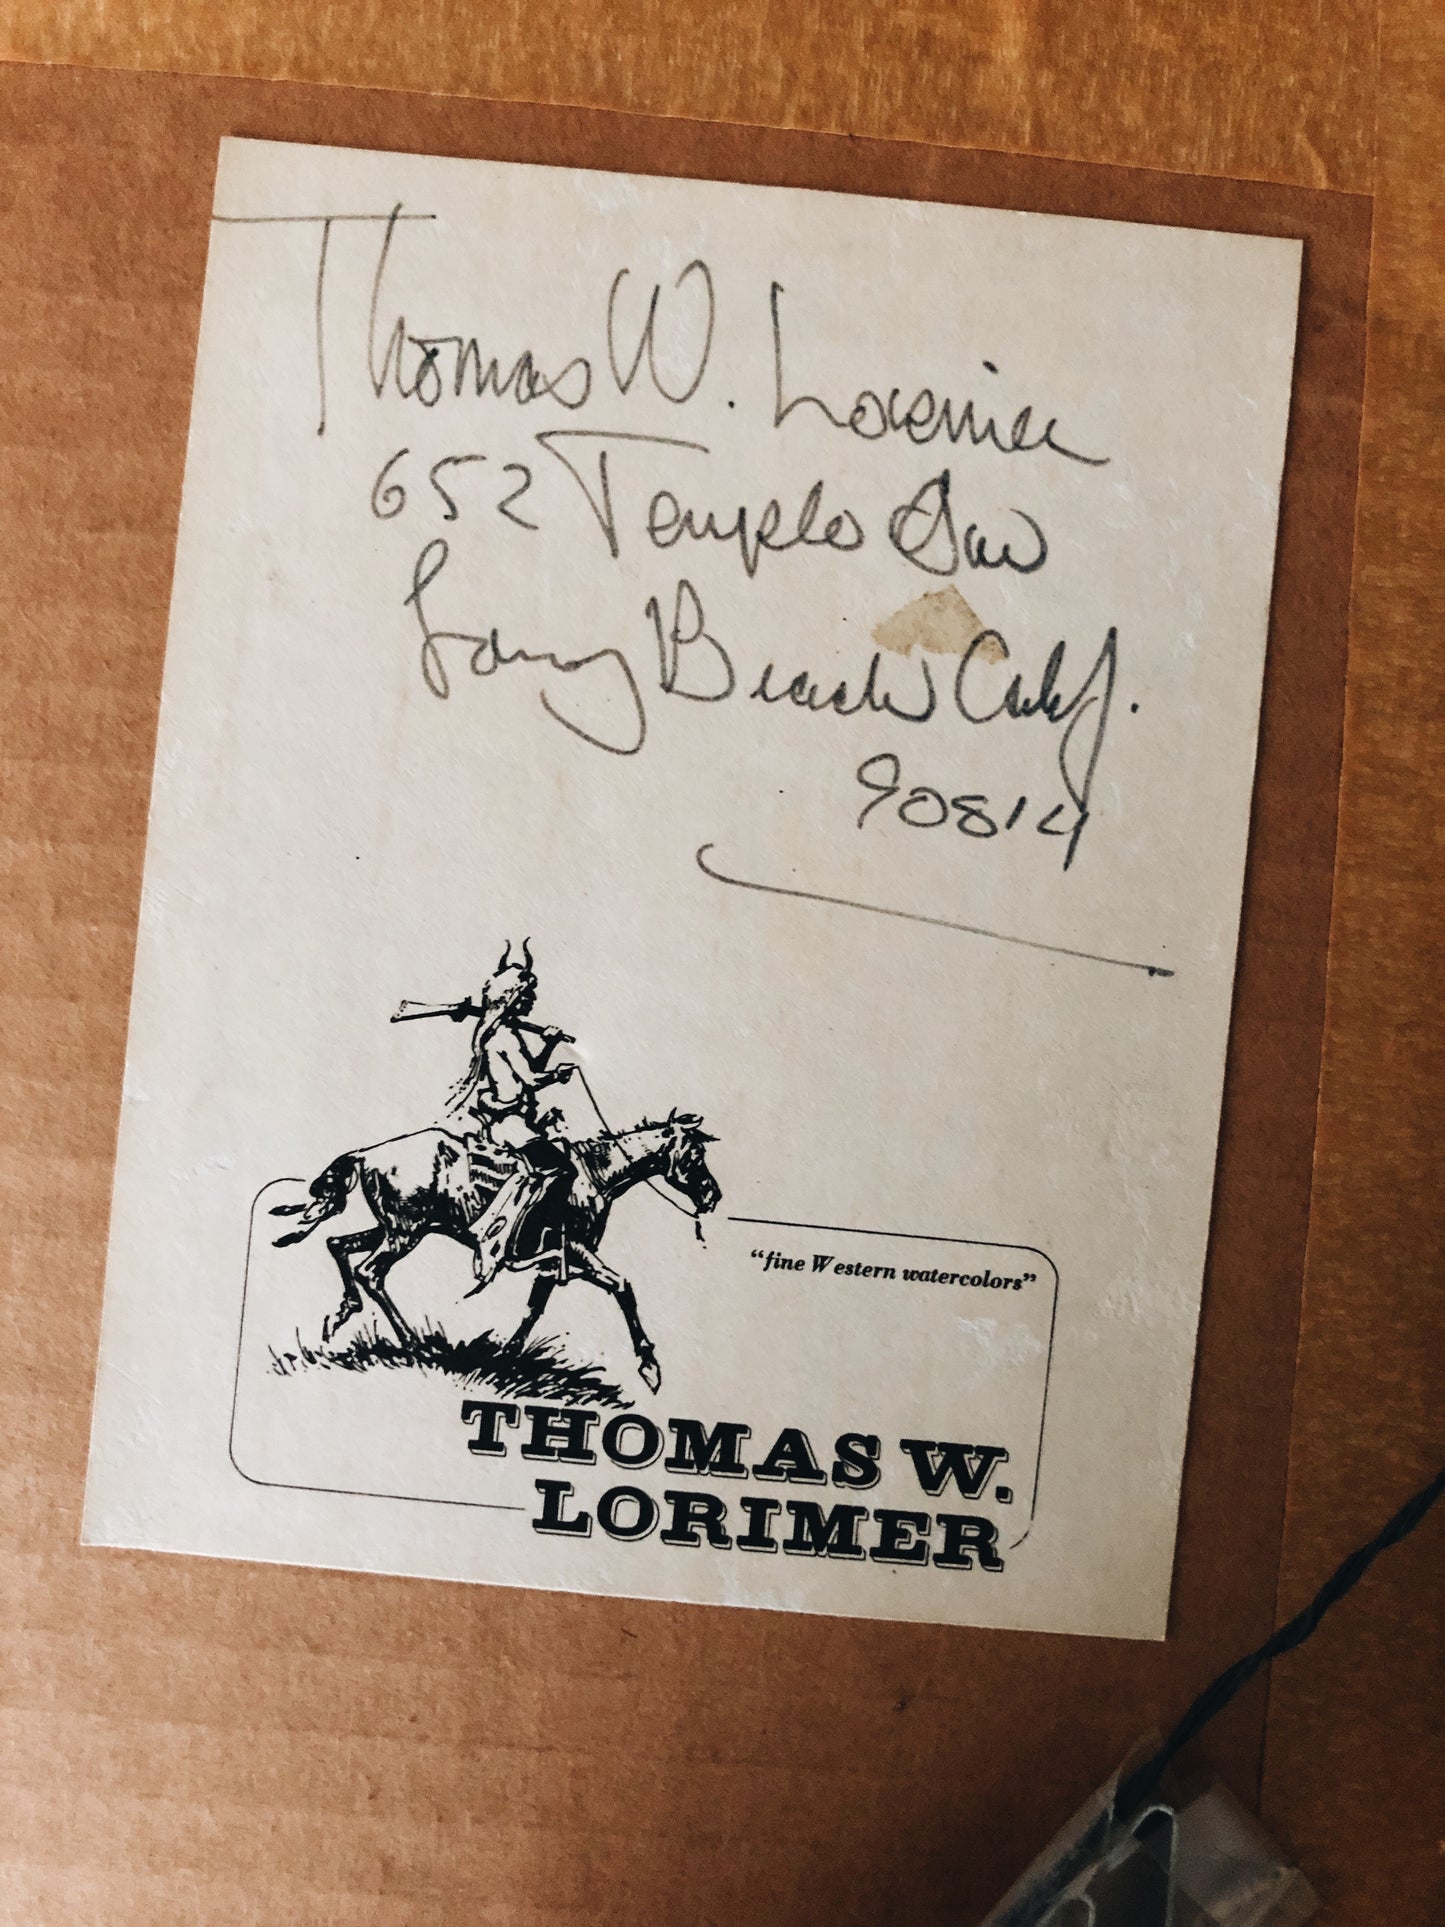 Thomas W. Lorimer
652 Temple Ave
Long Beach Calif.
90814
“fine Western watercolors”
THOMAS W.
LORIMER